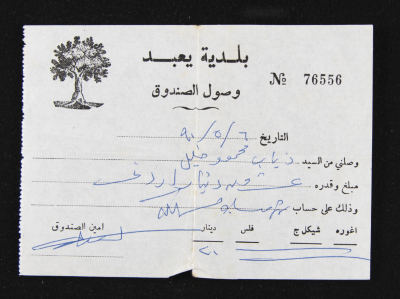 بلدية يعبد
وصول الصندوق
№ 76556
التاريخ ٦ / ٥ / ٩٠
وصلني من السيد ذياب محمود خليل
مبلغ وقدره عشرون دينار اردني
وذلك على حساب
اغوره شيكل ج فلس دينار امين الصندوق
٢٠